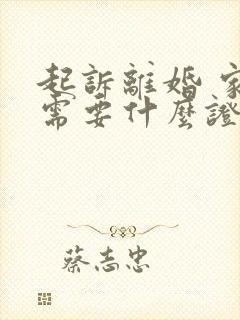 起訴離婚 家
需要什麼證
蔡志忠